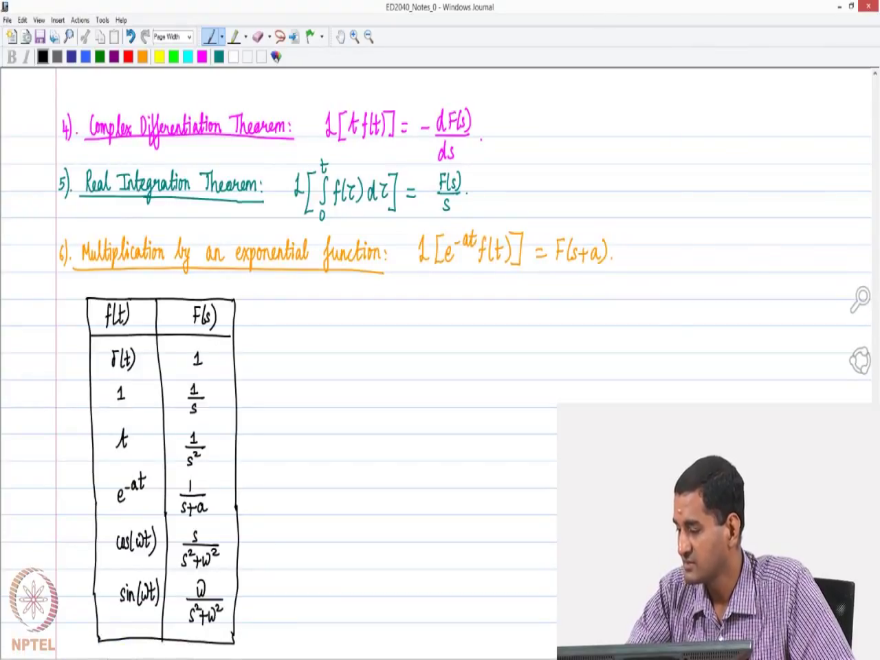 ED2040_Notes_0 - Windows Journal
File Edit View Insert Actions Tools Help
Page Width
B I
4). Complex Differentiation Theorem: L[t f(t)] = - dF(s)/ds.
5). Real Integration Theorem: L[∫₀ᵗ f(τ)dτ] = F(s)/s.
6). Multiplication by an exponential function: L[e^-at f(t)] = F(s+a).
f(t) F(s)
δ(t) 1
1 1/s
t 1/s²
e^-at 1/(s+a)
cos(ωt) s/(s²+ω²)
sin(ωt) ω/(s²+ω²)
NPTEL